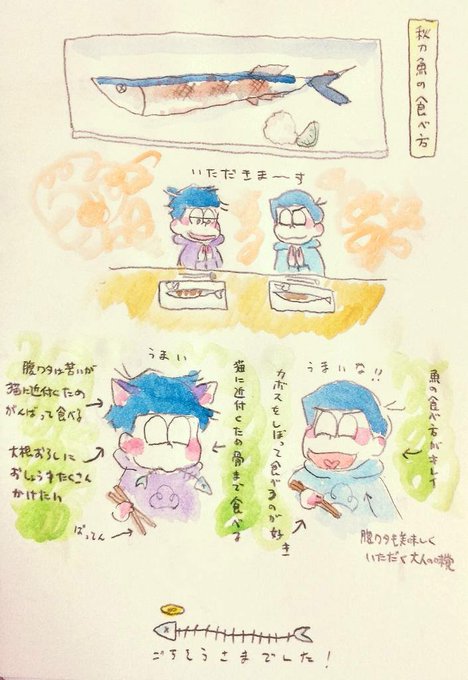 秋刀魚の食べ方
いただきま〜す
うまい
腹ワタは苦いが
猫に近付くため
がんばって食べる
大根おろしに
おしょうゆたくさん
かけたい
ばってん
猫に近付くため骨まで食べる
うまいな!!
カボスをしぼって食べるのが好き
魚の食べ方がキレイ
腹ワタも美味しく
いただく大人の味覚
ごちそうさまでした!